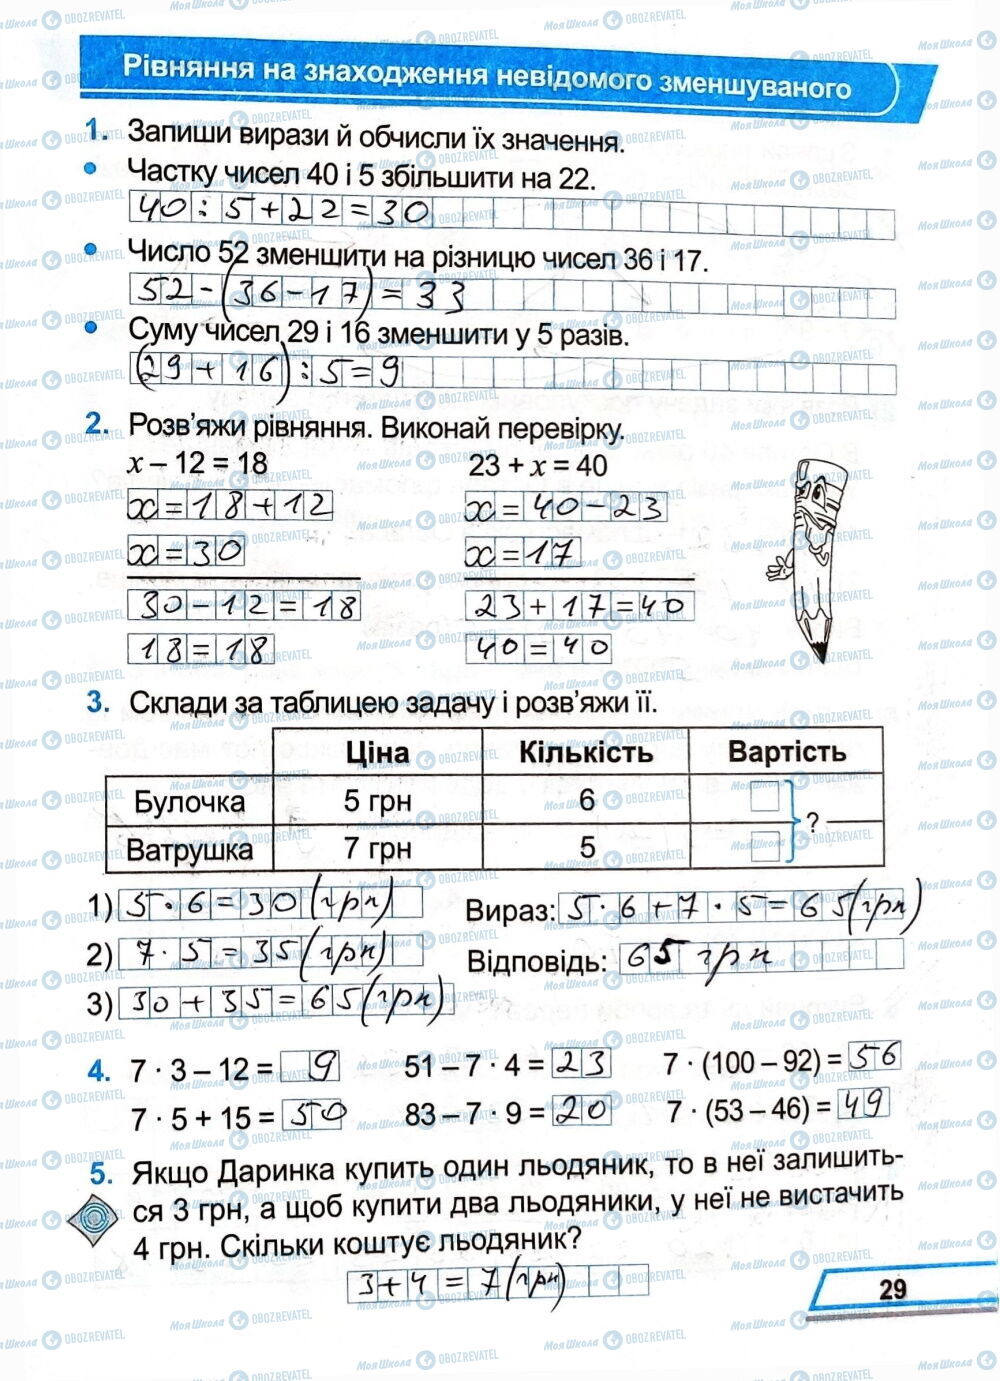 Рівняння на знаходження невідомого зменшуваного
1. Запиши вирази й обчисли їх значення.
• Частку чисел 40 і 5 збільшити на 22.
40:5+22=30
• Число 52 зменшити на різницю чисел 36 і 17.
52-(36-17)=33
• Суму чисел 29 і 16 зменшити у 5 разів.
(29+16):5=9
2. Розв'яжи рівняння. Виконай перевірку.
x – 12 = 18 23 + x = 40
x=18+12 x=40-23
x=30 x=17
30-12=18 23+17=40
18=18 40=40
3. Склади за таблицею задачу і розв'яжи її.
Ціна Кількість Вартість
Булочка 5 грн 6
?
Ватрушка 7 грн 5
1) 5·6=30(грн) Вираз: 5·6+7·5=65(грн)
2) 7·5=35(грн) Відповідь: 65 грн
3) 30+35=65(грн)
4. 7 · 3 – 12 = 9 51 – 7 · 4 = 23 7 · (100 – 92) = 56
7 · 5 + 15 = 50 83 – 7 · 9 = 20 7 · (53 – 46) = 49
5. Якщо Даринка купить один льодяник, то в неї залишить-
ся 3 грн, а щоб купити два льодяники, у неї не вистачить
4 грн. Скільки коштує льодяник?
3+4=7(грн)
29
МояШкола OBOZREVATEL